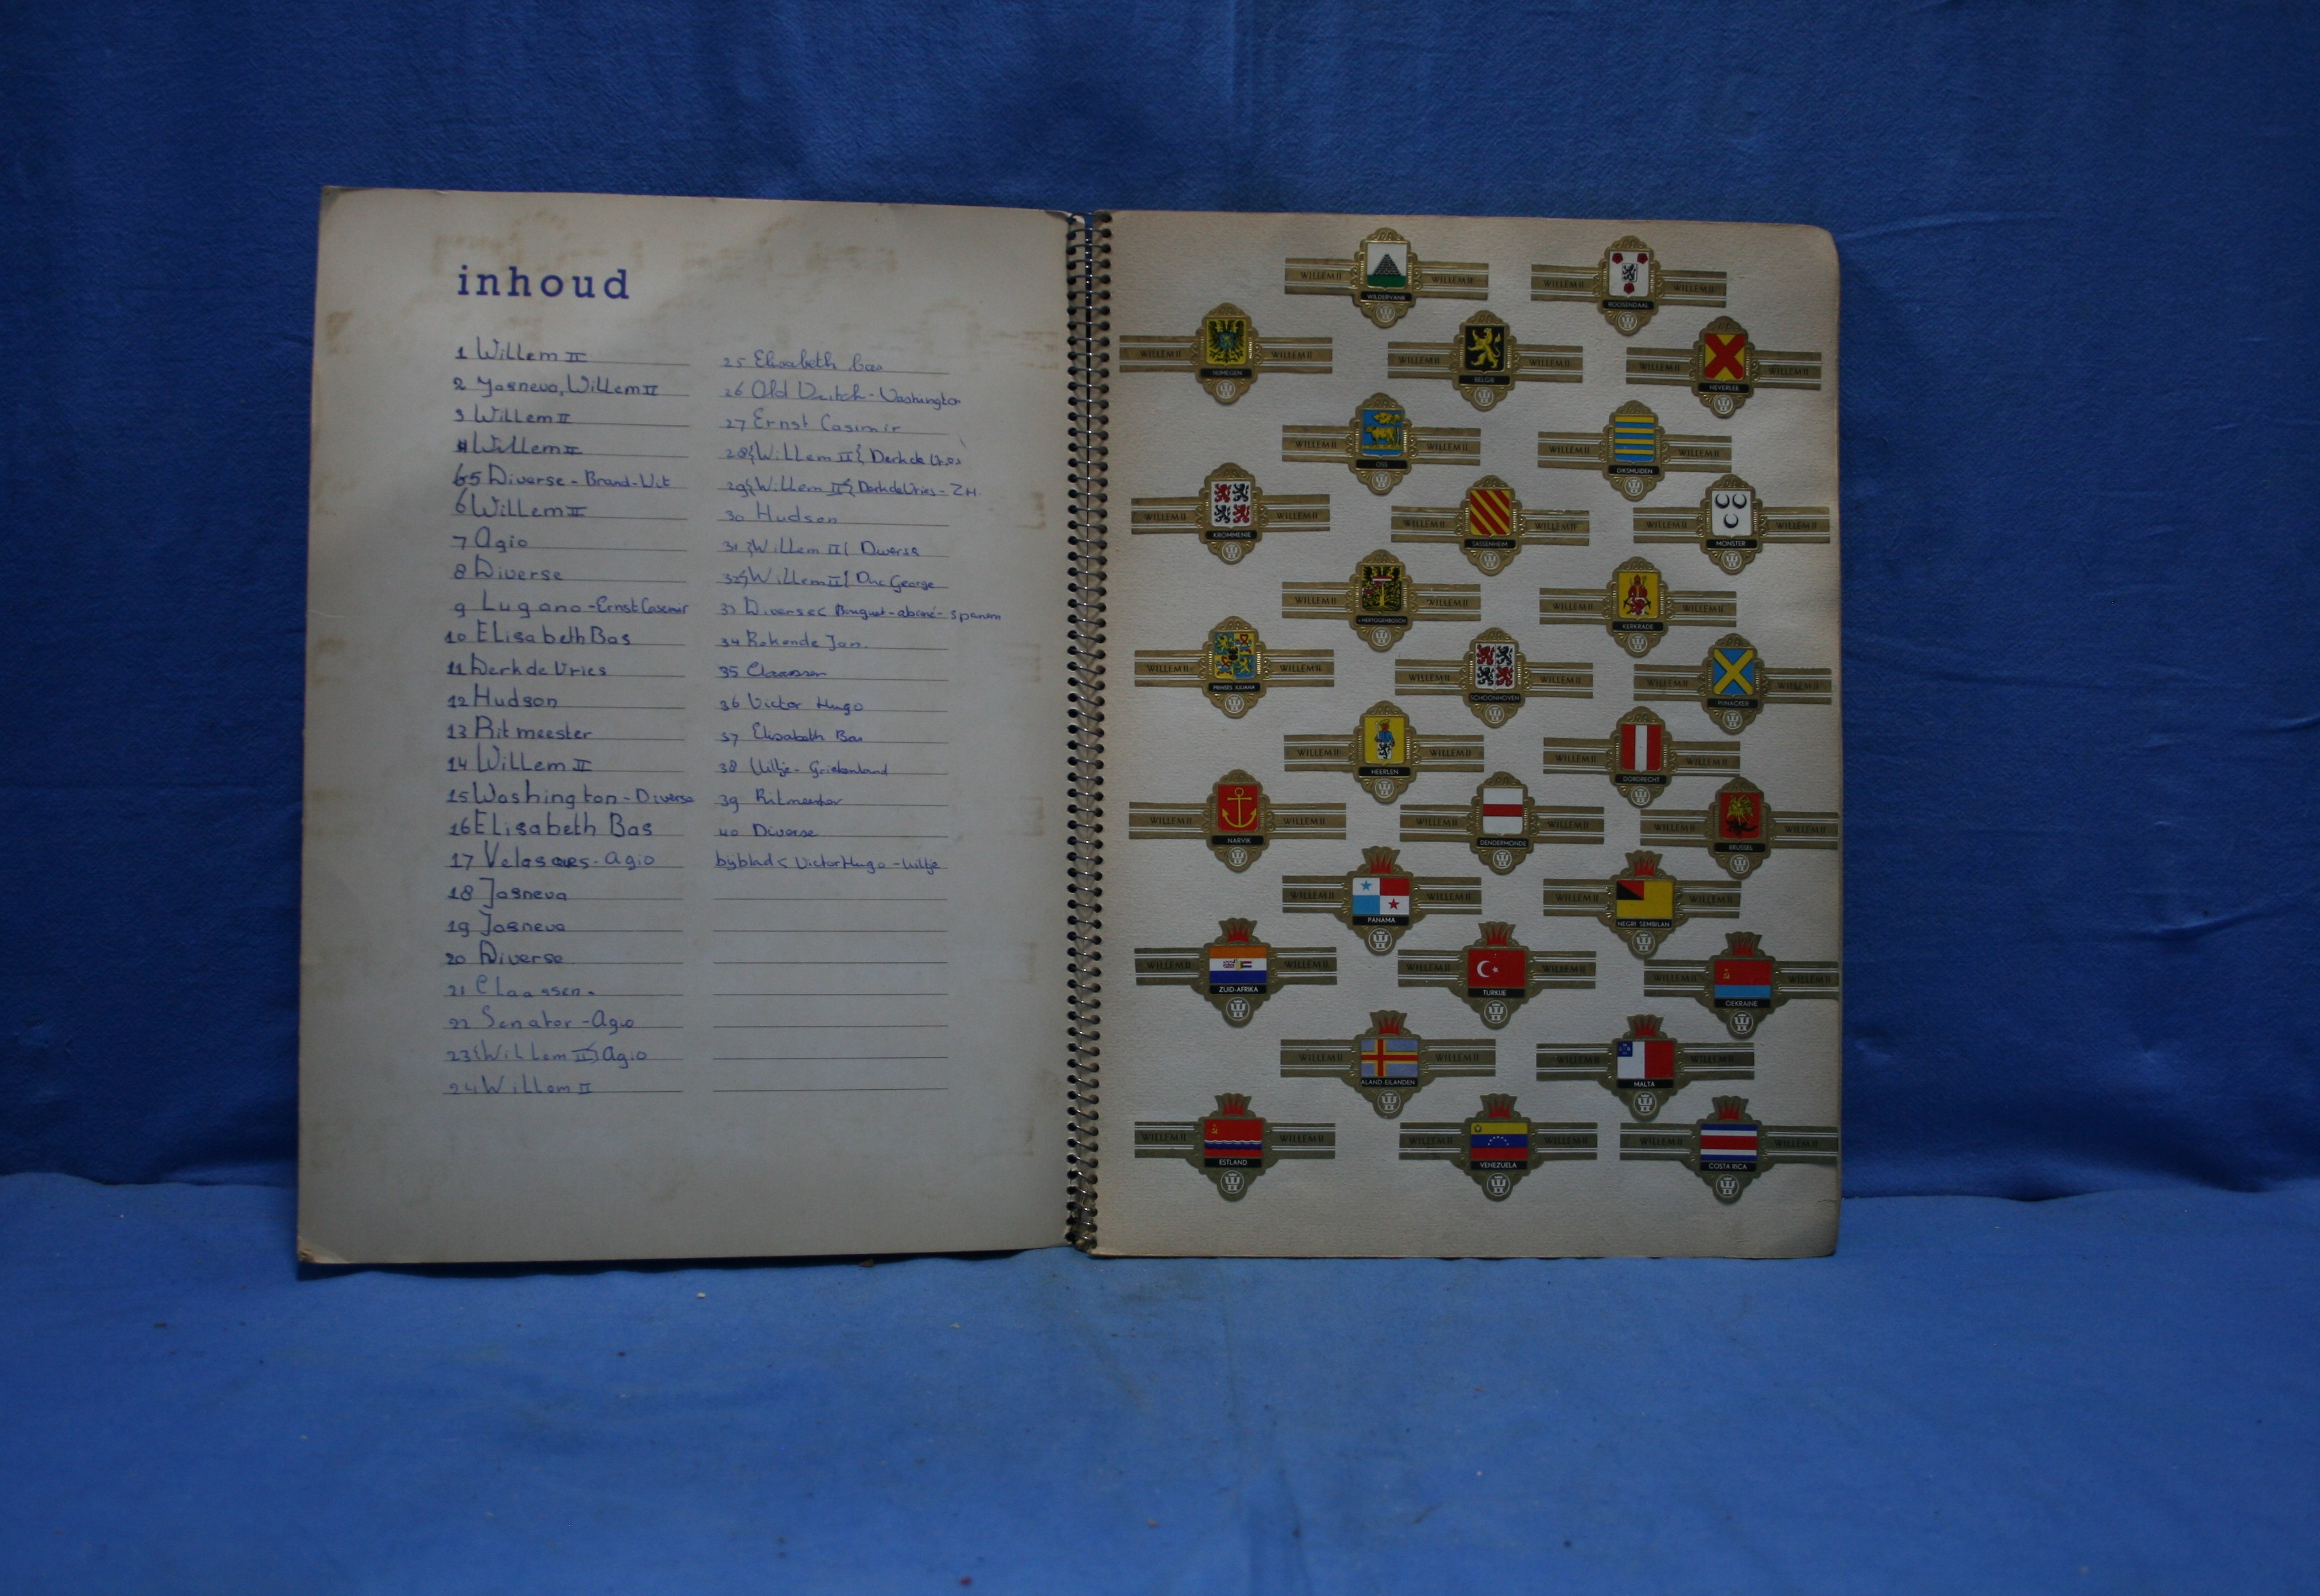 inhoud
1 Willem II
2 Josneva, Willem II
3 Willem II
4 Willem II
5 Diverse - Brand-Uit
6 Willem II
7 Agio
8 Diverse
9 Lugano - Ernst Casemir
10 Elisabeth Bas
11 Derk de Vries
12 Hudson
13 Ritmeester
14 Willem II
15 Washington - Diverse
16 Elisabeth Bas
17 Velasques - Agio
18 Josneva
19 Josneva
20 Diverse
21 Claassen.
22 Senator - Agio
23 (Willem II) Agio
24 Willem II
25 Elisabeth bas
26 Old Dutch - Washington
27 Ernst Casimir
28 {Willem II{ Derk de Vries
29 {Willem II{ Derk de Vries - ZH
30 Hudson
31 {Willem II{ Diverse
32 {Willem II{ Duc George
33 Diverse < Bouquet - aboné - Spanm
34 Rokende Jan.
35 Claassen
36 Victor Hugo
37 Elisabeth Bas
38 Uiltje - Griekenland
39 Ritmeester
40 Diverse
byblad < Victor Hugo - Uiltje
WILLEM II WILDERVANK WILLEM II
WILLEM II ROOSENDAAL WILLEM II
WILLEM II NIJMEGEN WILLEM II
WILLEM II BELGIE WILLEM II
WILLEM II HEVERLEE WILLEM II
WILLEM II OSS WILLEM II
WILLEM II DIKSMUIDEN WILLEM II
WILLEM II KROMMENIE WILLEM II
WILLEM II SASSENHEIM WILLEM II
WILLEM II MONSTER WILLEM II
WILLEM II s HERTOGENBOSCH WILLEM II
WILLEM II KERKRADE WILLEM II
WILLEM II PRINSES JULIANA WILLEM II
WILLEM II SCHOONHOVEN WILLEM II
WILLEM II PIJNACKER WILLEM II
WILLEM II HEERLEN WILLEM II
WILLEM II DORDRECHT WILLEM II
WILLEM II NARVIK WILLEM II
WILLEM II DENDERMONDE WILLEM II
WILLEM II BRUSSEL WILLEM II
WILLEM II PANAMA WILLEM II
WILLEM II NEGRI SEMBILAN WILLEM II
WILLEM II ZUID-AFRIKA WILLEM II
WILLEM II TURKIJE WILLEM II
WILLEM II OEKRAINE WILLEM II
WILLEM II ALAND EILANDEN WILLEM II
WILLEM II MALTA WILLEM II
WILLEM II ESTLAND WILLEM II
WILLEM II VENEZUELA WILLEM II
WILLEM II COSTA RICA WILLEM II